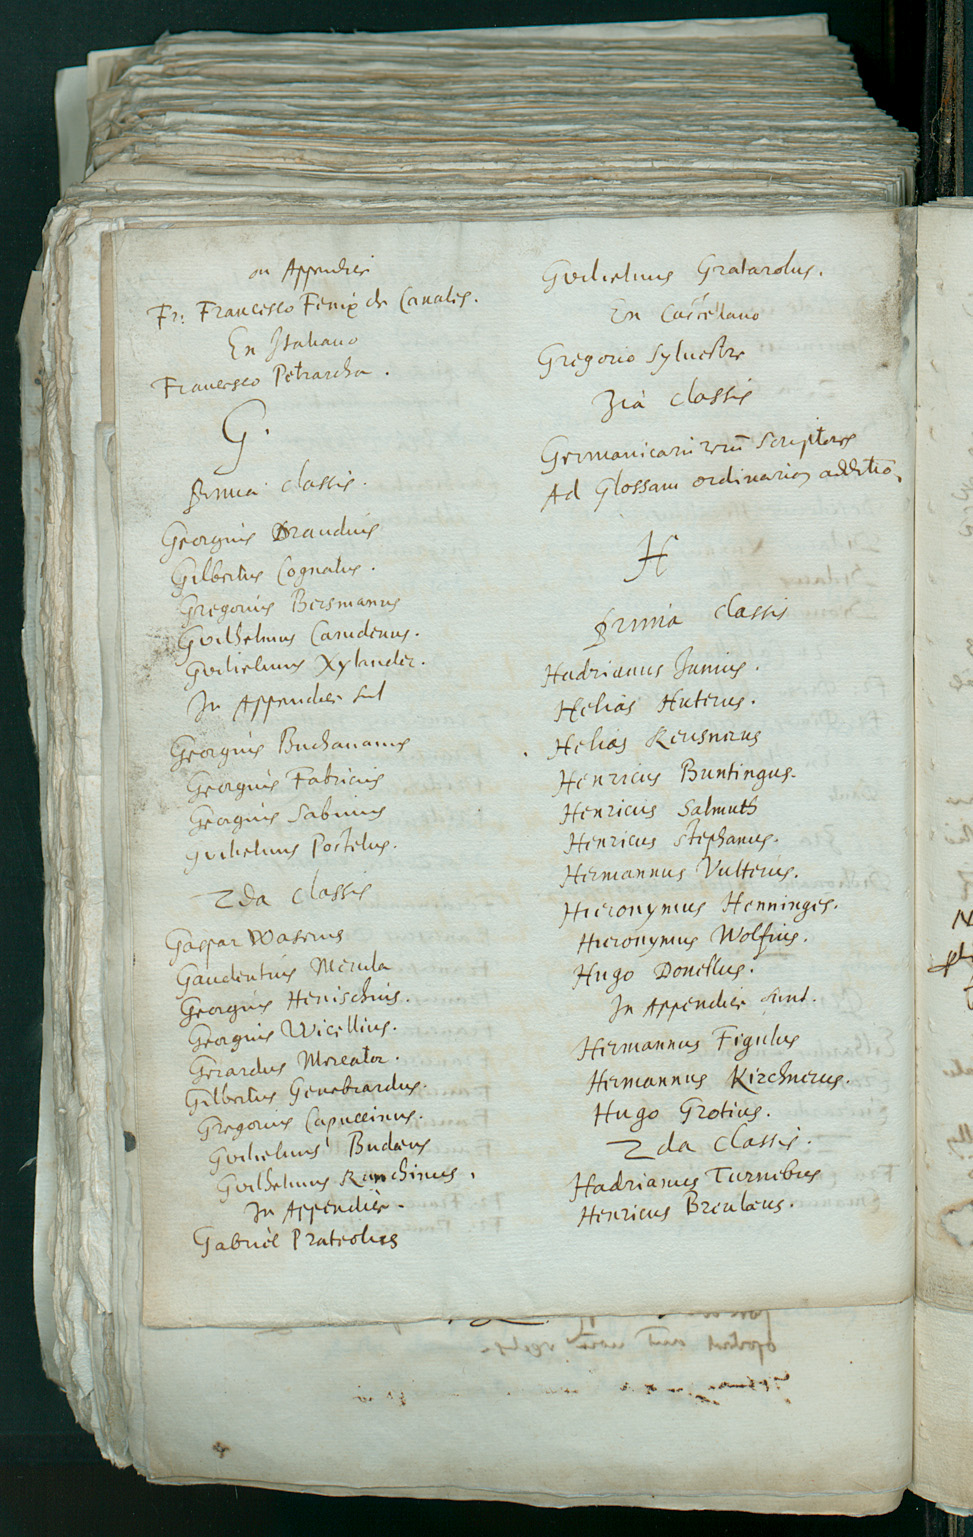 en Appendice
Fr. Francesco Fenix de Canales.
En Italiano
Francesco Petrarcha.
G.
prima classis.
Georgius Draudius
Gilbertus Cognatus.
Gregorius Bersmanus
Guilhelmus Camdenus.
Guilielmus Xylander.
In Appendice sut
Georgius Buchananus
Georgius Fabricius
Georgius Sabinus
Guilielmus Postelus.
2da classis
Gaspar Waserus
Gaudentius Merula
Georgius Henischius.
Georgius Wicellius.
Gerardus Mercator.
Gilbertus Genebrardus.
Gregorius Capuccinus.
Guilielmus Budæus
Guilhelmus Ranchinus.
In Appendice.
Gabriel Prateolus
Guilielmus Gratarolus.
En Castellano
Gregorio Sylvestre
3ia classis
Germanicarũ rerũ Scriptores
Ad Glossam ordinariam additio.
H
prima classis
Hadrianus Junius.
Helias Huterus.
Helias Reusnerus
Henricus Buntingus.
Henricus Salmuth
Henricus Stephanus.
Hermannus Vulteius.
Hieronymus Henninges.
Hieronymus Wolfius.
Hugo Donellus.
In Appendice sunt.
Hermannus Figulus
Hermannus Kirchnerus.
Hugo Grotius.
2da classis.
Hadrianus Turnebus
Henricus Breulæus.